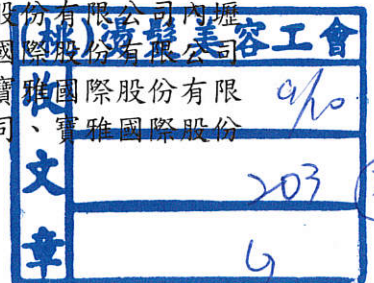 股份有限公司內壢
國際股份有限公司
寶雅國際股份有限
司、寶雅國際股份
(桃)燙髮美容工會
收文章
9/20
203